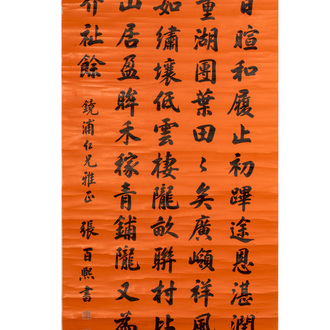 日暄和履止初蹕途恩湛閏
重湖團葉田〻矣廣巘祥風
如繡壤低雲棲隴畝聯村比
山居盈眸禾稼青鋪隴又為
介祉餘
鏡浦仁兄雅正 張百熙書